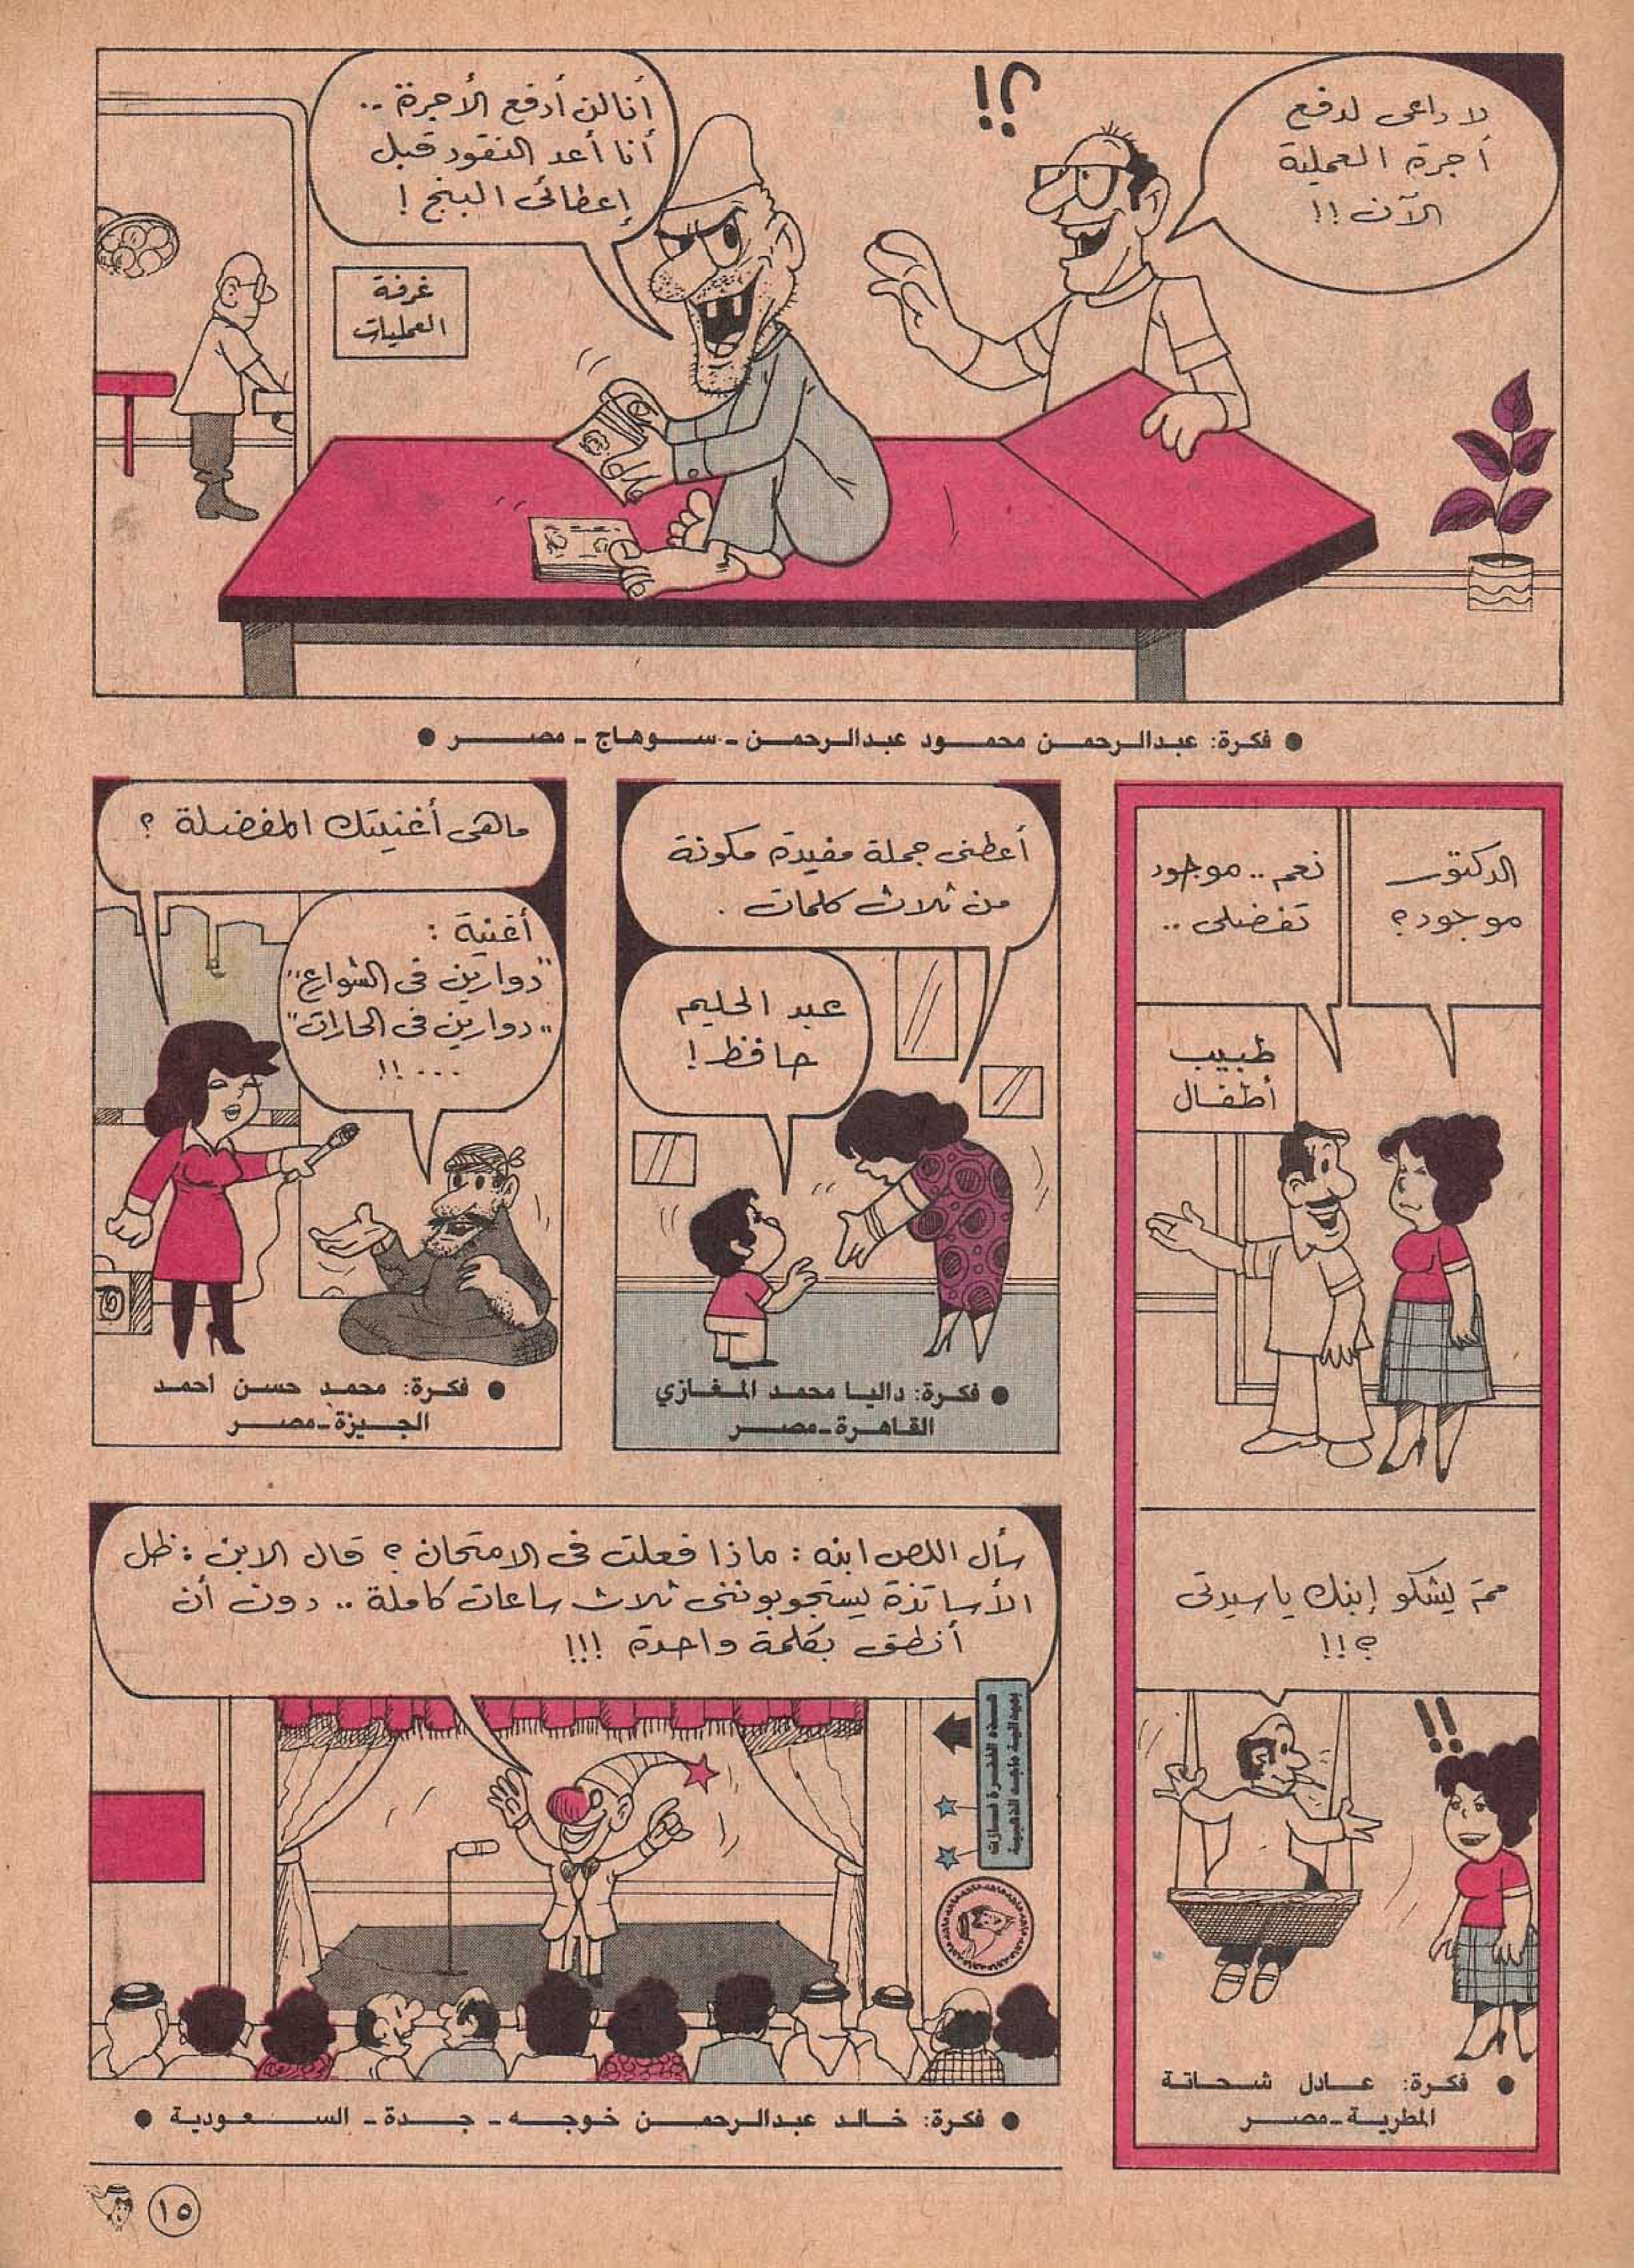 لا داعى لدفع
أجرة العملية
الآن !!
؟!
أنا لن أدفع الأجرة ..
أنا أعد النقود قبل
إعطائى البنج !
غرفة
العمليات
● فكرة: عبدالرحمن محمود عبدالرحمن - سوهاج - مصر ●
الدكتور
موجود؟
نعم .. موجود
تفضلى ..
طبيب
أطفال
مم يشكو إبنك يا سيدتى
؟!!
!!
● فكرة: عادل شحاتة
المطرية - مصر
أعطنى جملة مفيدة مكونة
من ثلاث كلمات .
عبد الحليم
حافظ !
● فكرة: داليا محمد المغازي
القاهرة - مصر
ماهى أغنيتك المفضلة ؟
أغنية :
"دوارين فى الشوارع"
"دوارين فى الحارات"
... !!
● فكرة: محمد حسن احمد
الجيزة - مصر
سأل اللص ابنه : ماذا فعلت فى الامتحان ؟ قال الابن : ظل
الأساتذة يستجوبوننى ثلاث ساعات كاملة .. دون أن
أنطق بكلمة واحدة !!!
هذه الفكرة فازت
بميدالية ماجد الذهبية
● فكرة: خالد عبدالرحمن خوجه - جدة - السعودية ●
١٥